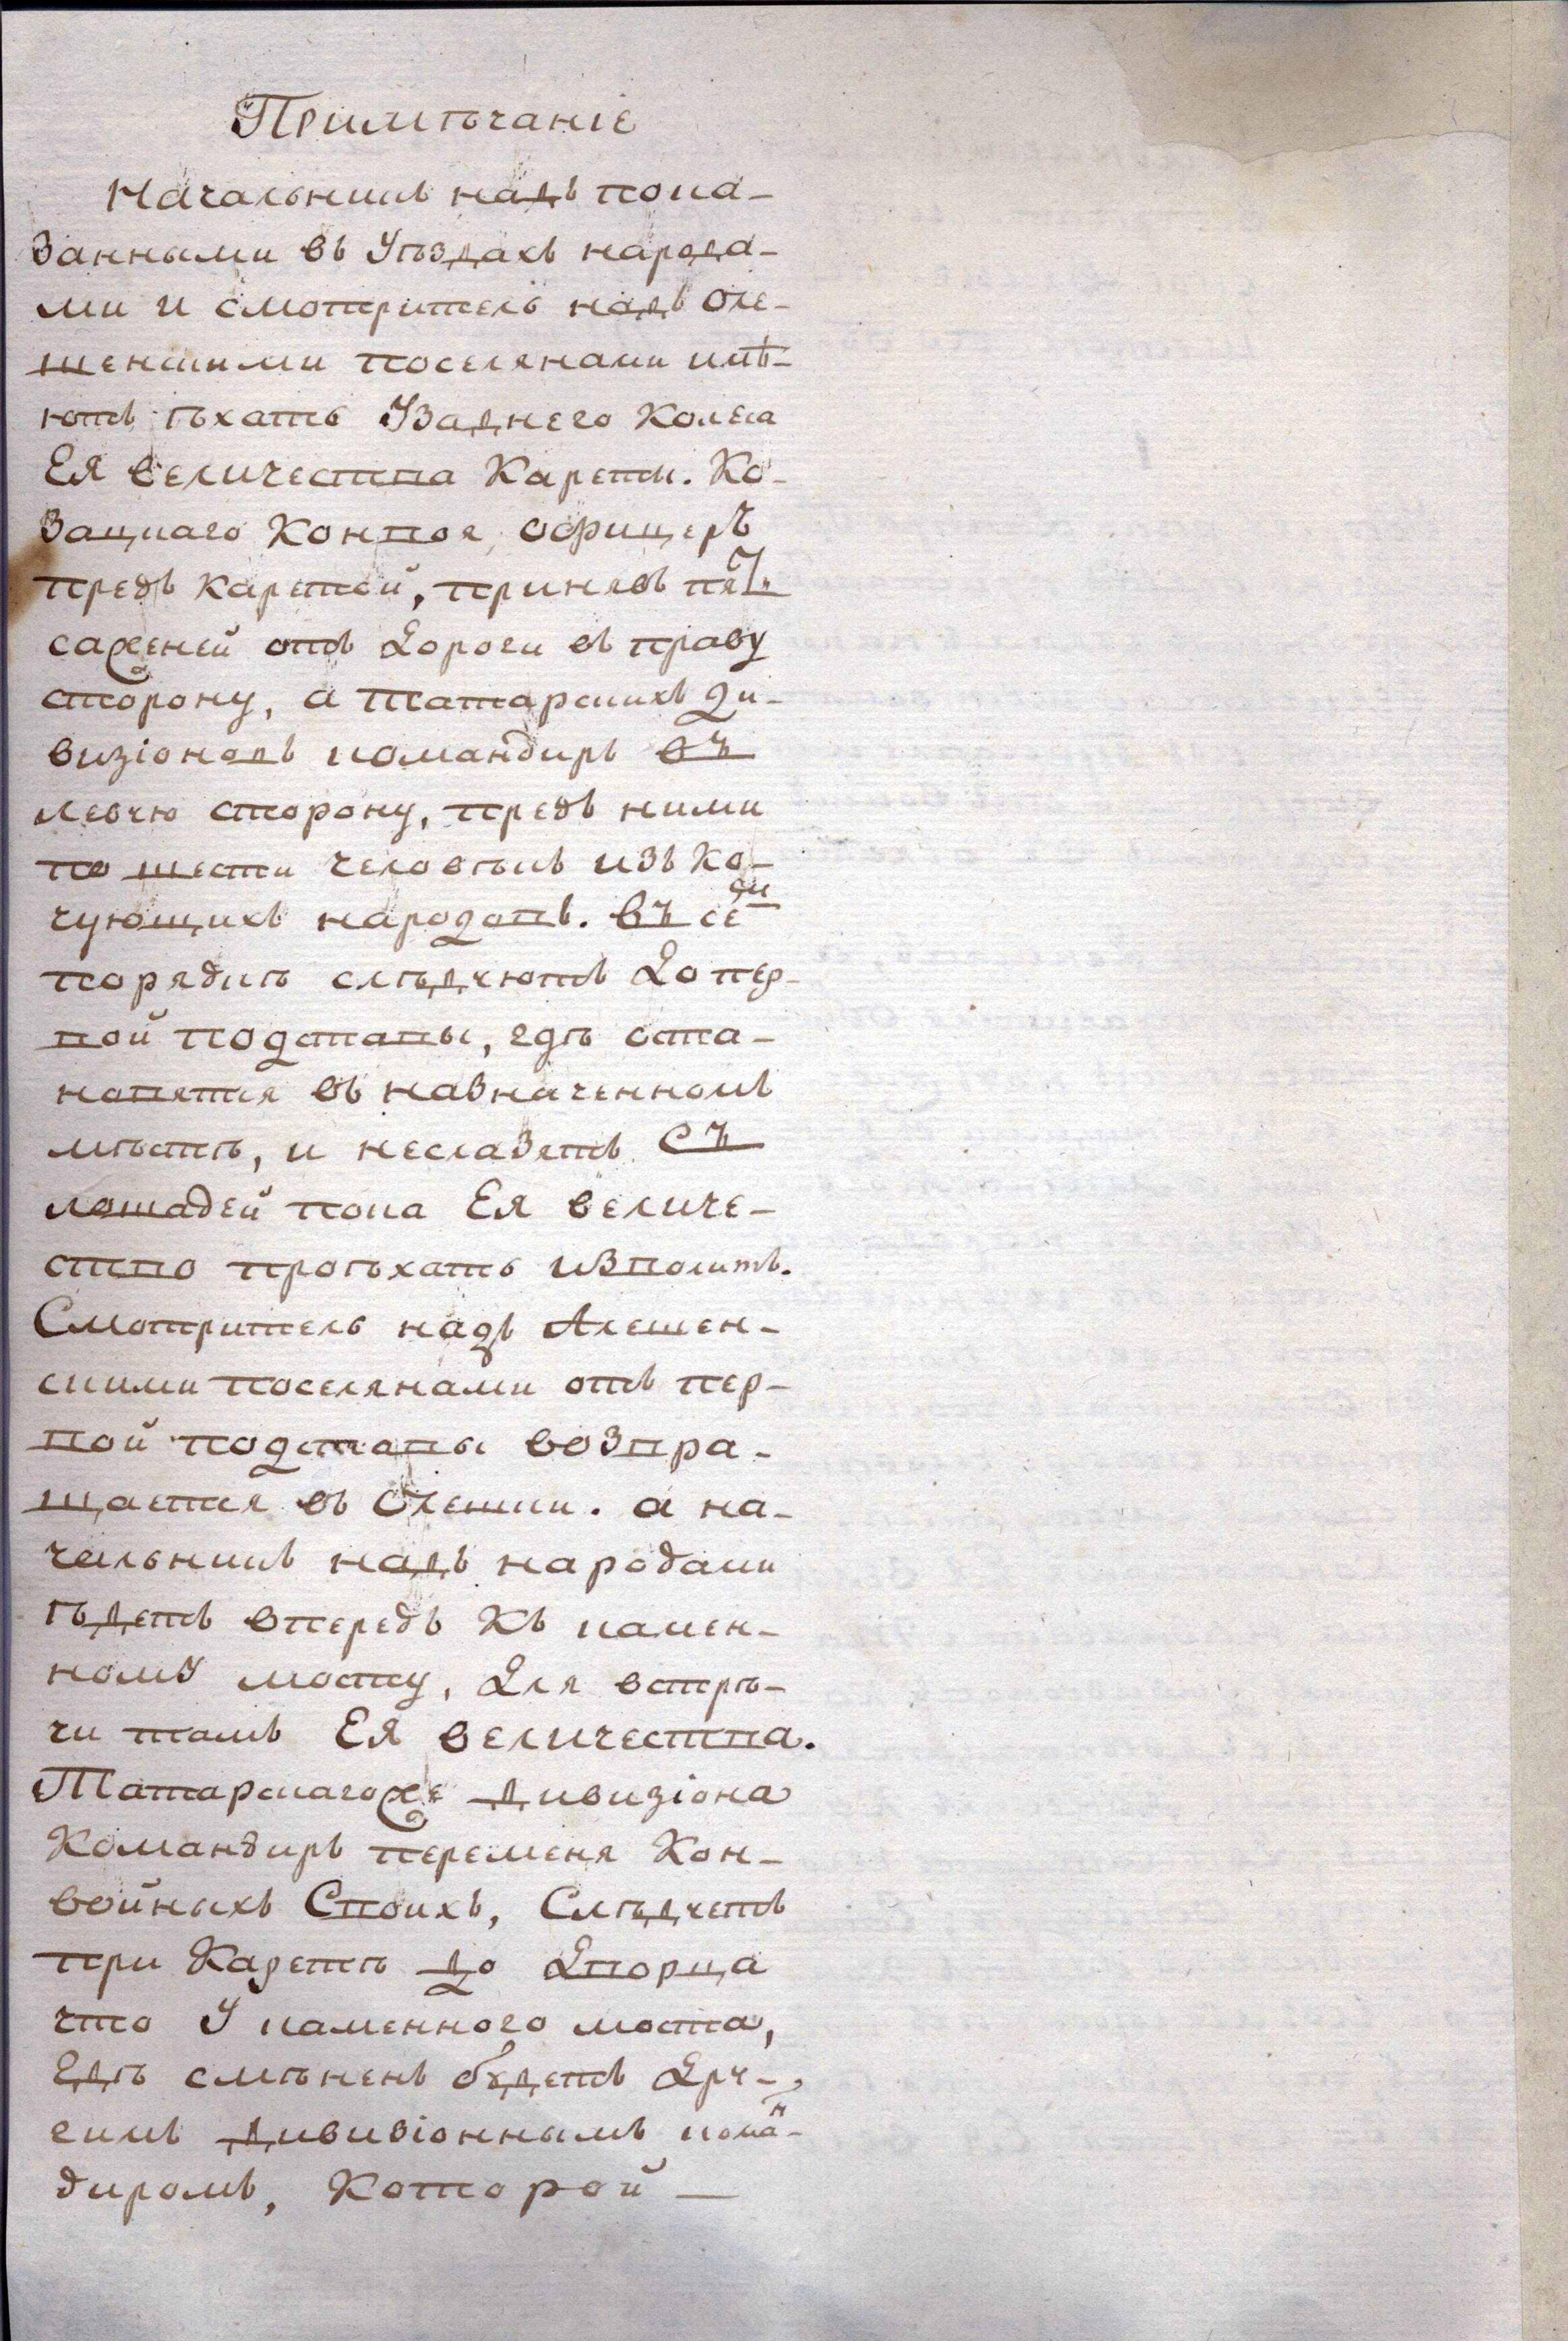 Примѣчаніе
Начальникъ надъ пока-
занными въ Уѣздахъ народа-
ми и смотритель надъ Оле-
шенскими поселянами имѣ-
ютъ ѣхать Узаднего Колеса
Ея величества Кареты. Ко-
зацкаго Конвоя, офицеръ
предъ каретой, принявъ пять
саженей отъ Дороги въ праву
сторону, а татарскихъ ди-
визіоновъ командиръ въ
левую сторону, предъ ними
по шести человѣкъ изъ ко-
чующихъ народовъ. въ сем
порядкѣ слѣдуютъ до пер-
вой подставы, гдѣ оста-
новятся въ назначенномъ
мѣстѣ, и неслазятъ съ
лошадей пока Ея величе-
ство проѣхать изволитъ.
Смотритель надъ Алешен-
скими поселянами отъ пер-
вой подставы возвра-
щается въ Олешки. а на-
чальникъ надъ народами
ѣдетъ впередъ къ камен-
ному мосту, для встрѣ-
чи тамъ Ея величества.
Татарскагоже дивизіона
Командиръ переменя Кон-
войныхъ Своихъ, Слѣдуетъ
при Каретѣ до Дворца
что У каменного моста,
гдѣ смѣненъ будетъ Дру-
гимъ дивизіоннымъ коман-
диромъ, Которой —